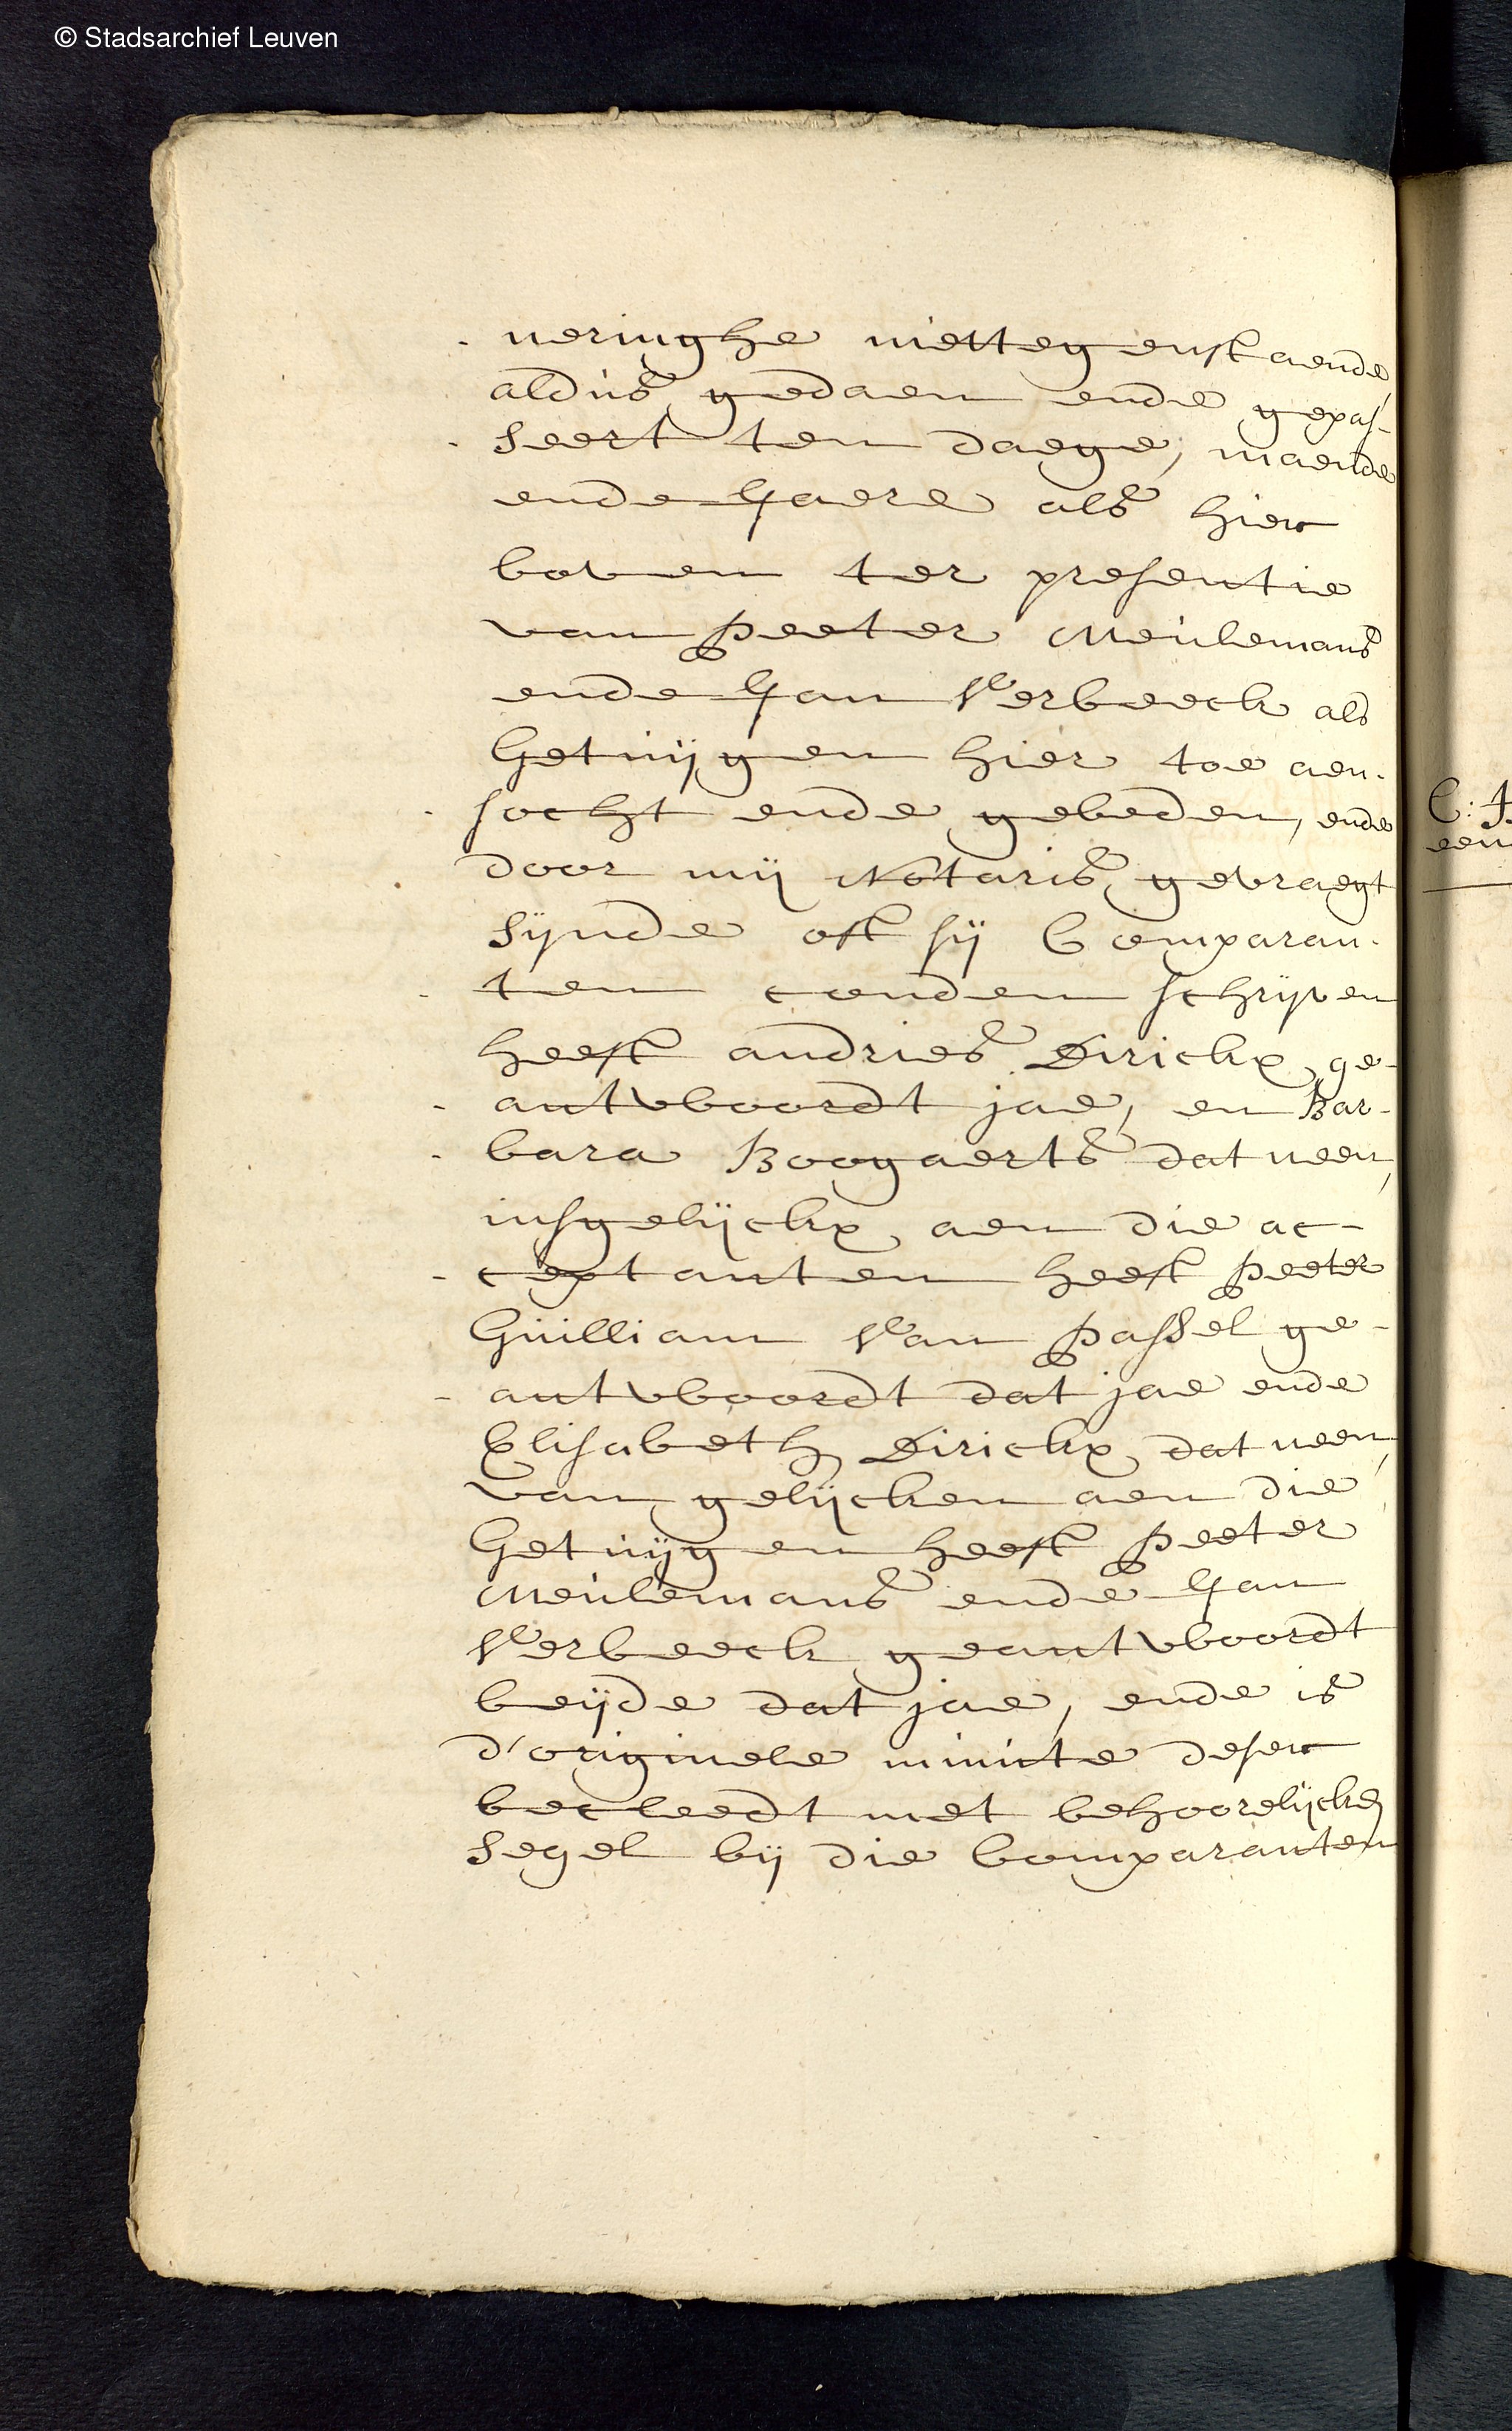 © Stadsarchief Leuven
- neringhe niettegenstaende,
aldus gedaen ende gepas-
- seert ten daege, maende
ende Jaere als hier
boven ter presentie
van Peeter Meulemans
ende Jan Verbeeck als
Getuijgen hier toe aen-
- socht ende gebeden, ende
door mij Notaris gevraegt
sijnde oft sij Comparan-
- ten conden schrijven
heeft andries Dirickx ge-
- antwoordt jae, en Bar-
- bara Boogaerts dat neen,
insgelijckx aen die ac-
- ceptanten heeft Peeter
Guilliam Van Passel ge-
- antwoordt dat jae ende
Elisabeth Dirickx dat neen,
van gelijcken aen die
Getuijgen heeft Peeter
Meulemans ende Jan
Verbeeck geantwoordt
beijde dat jae, ende is
d'originele minute deser
becleedt met behoorelijcken
segel bij die Comparanten